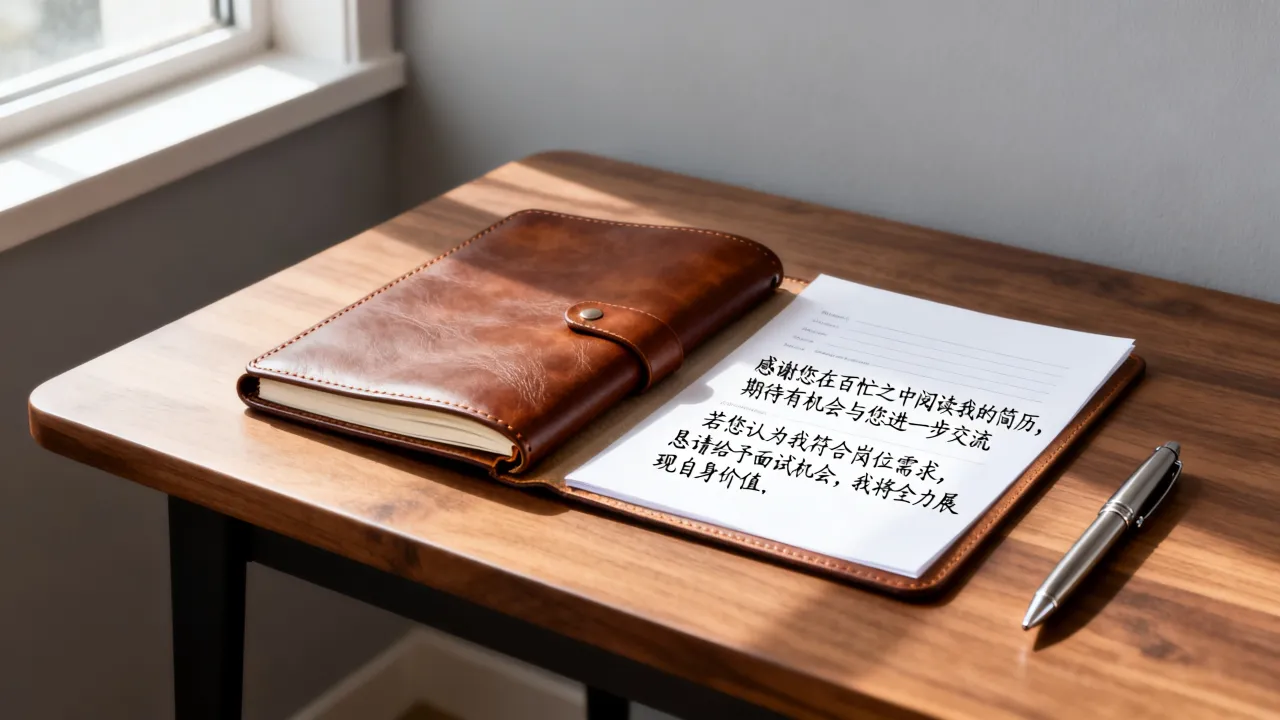 感谢您在百忙之中阅读我的简历，
期待有机会与您进一步交流
若您认为我符合岗位需求，
恳请给予面试机会，我将全力展
现自身价值.